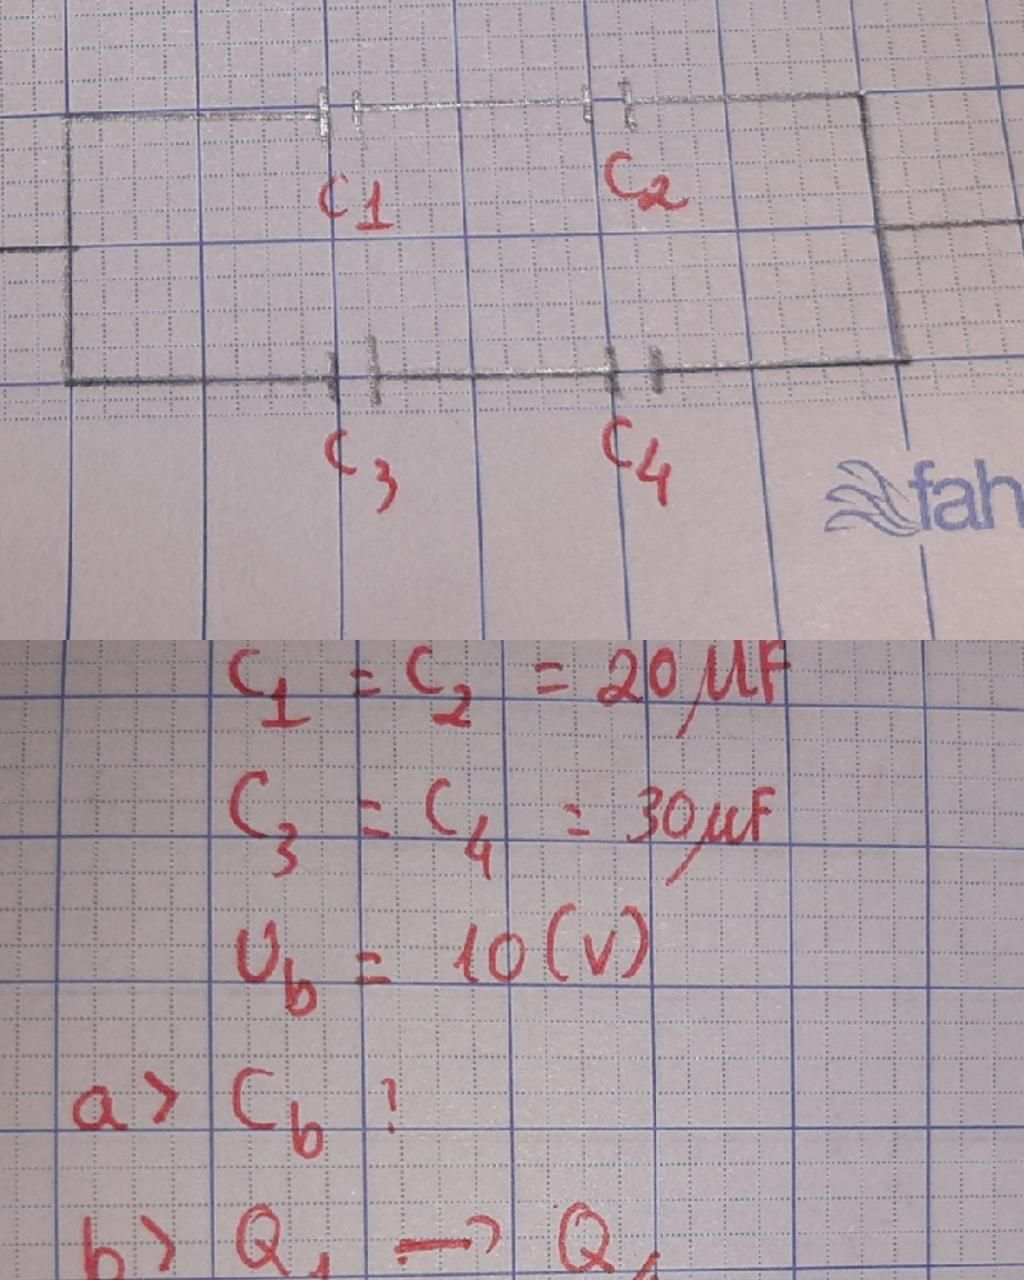 C1 C2
C3 C4
fah
C1 = C2 = 20 μF
C3 = C4 = 30 μF
Ub = 10 (V)
a> Cb ?
b> Q1 → Q4